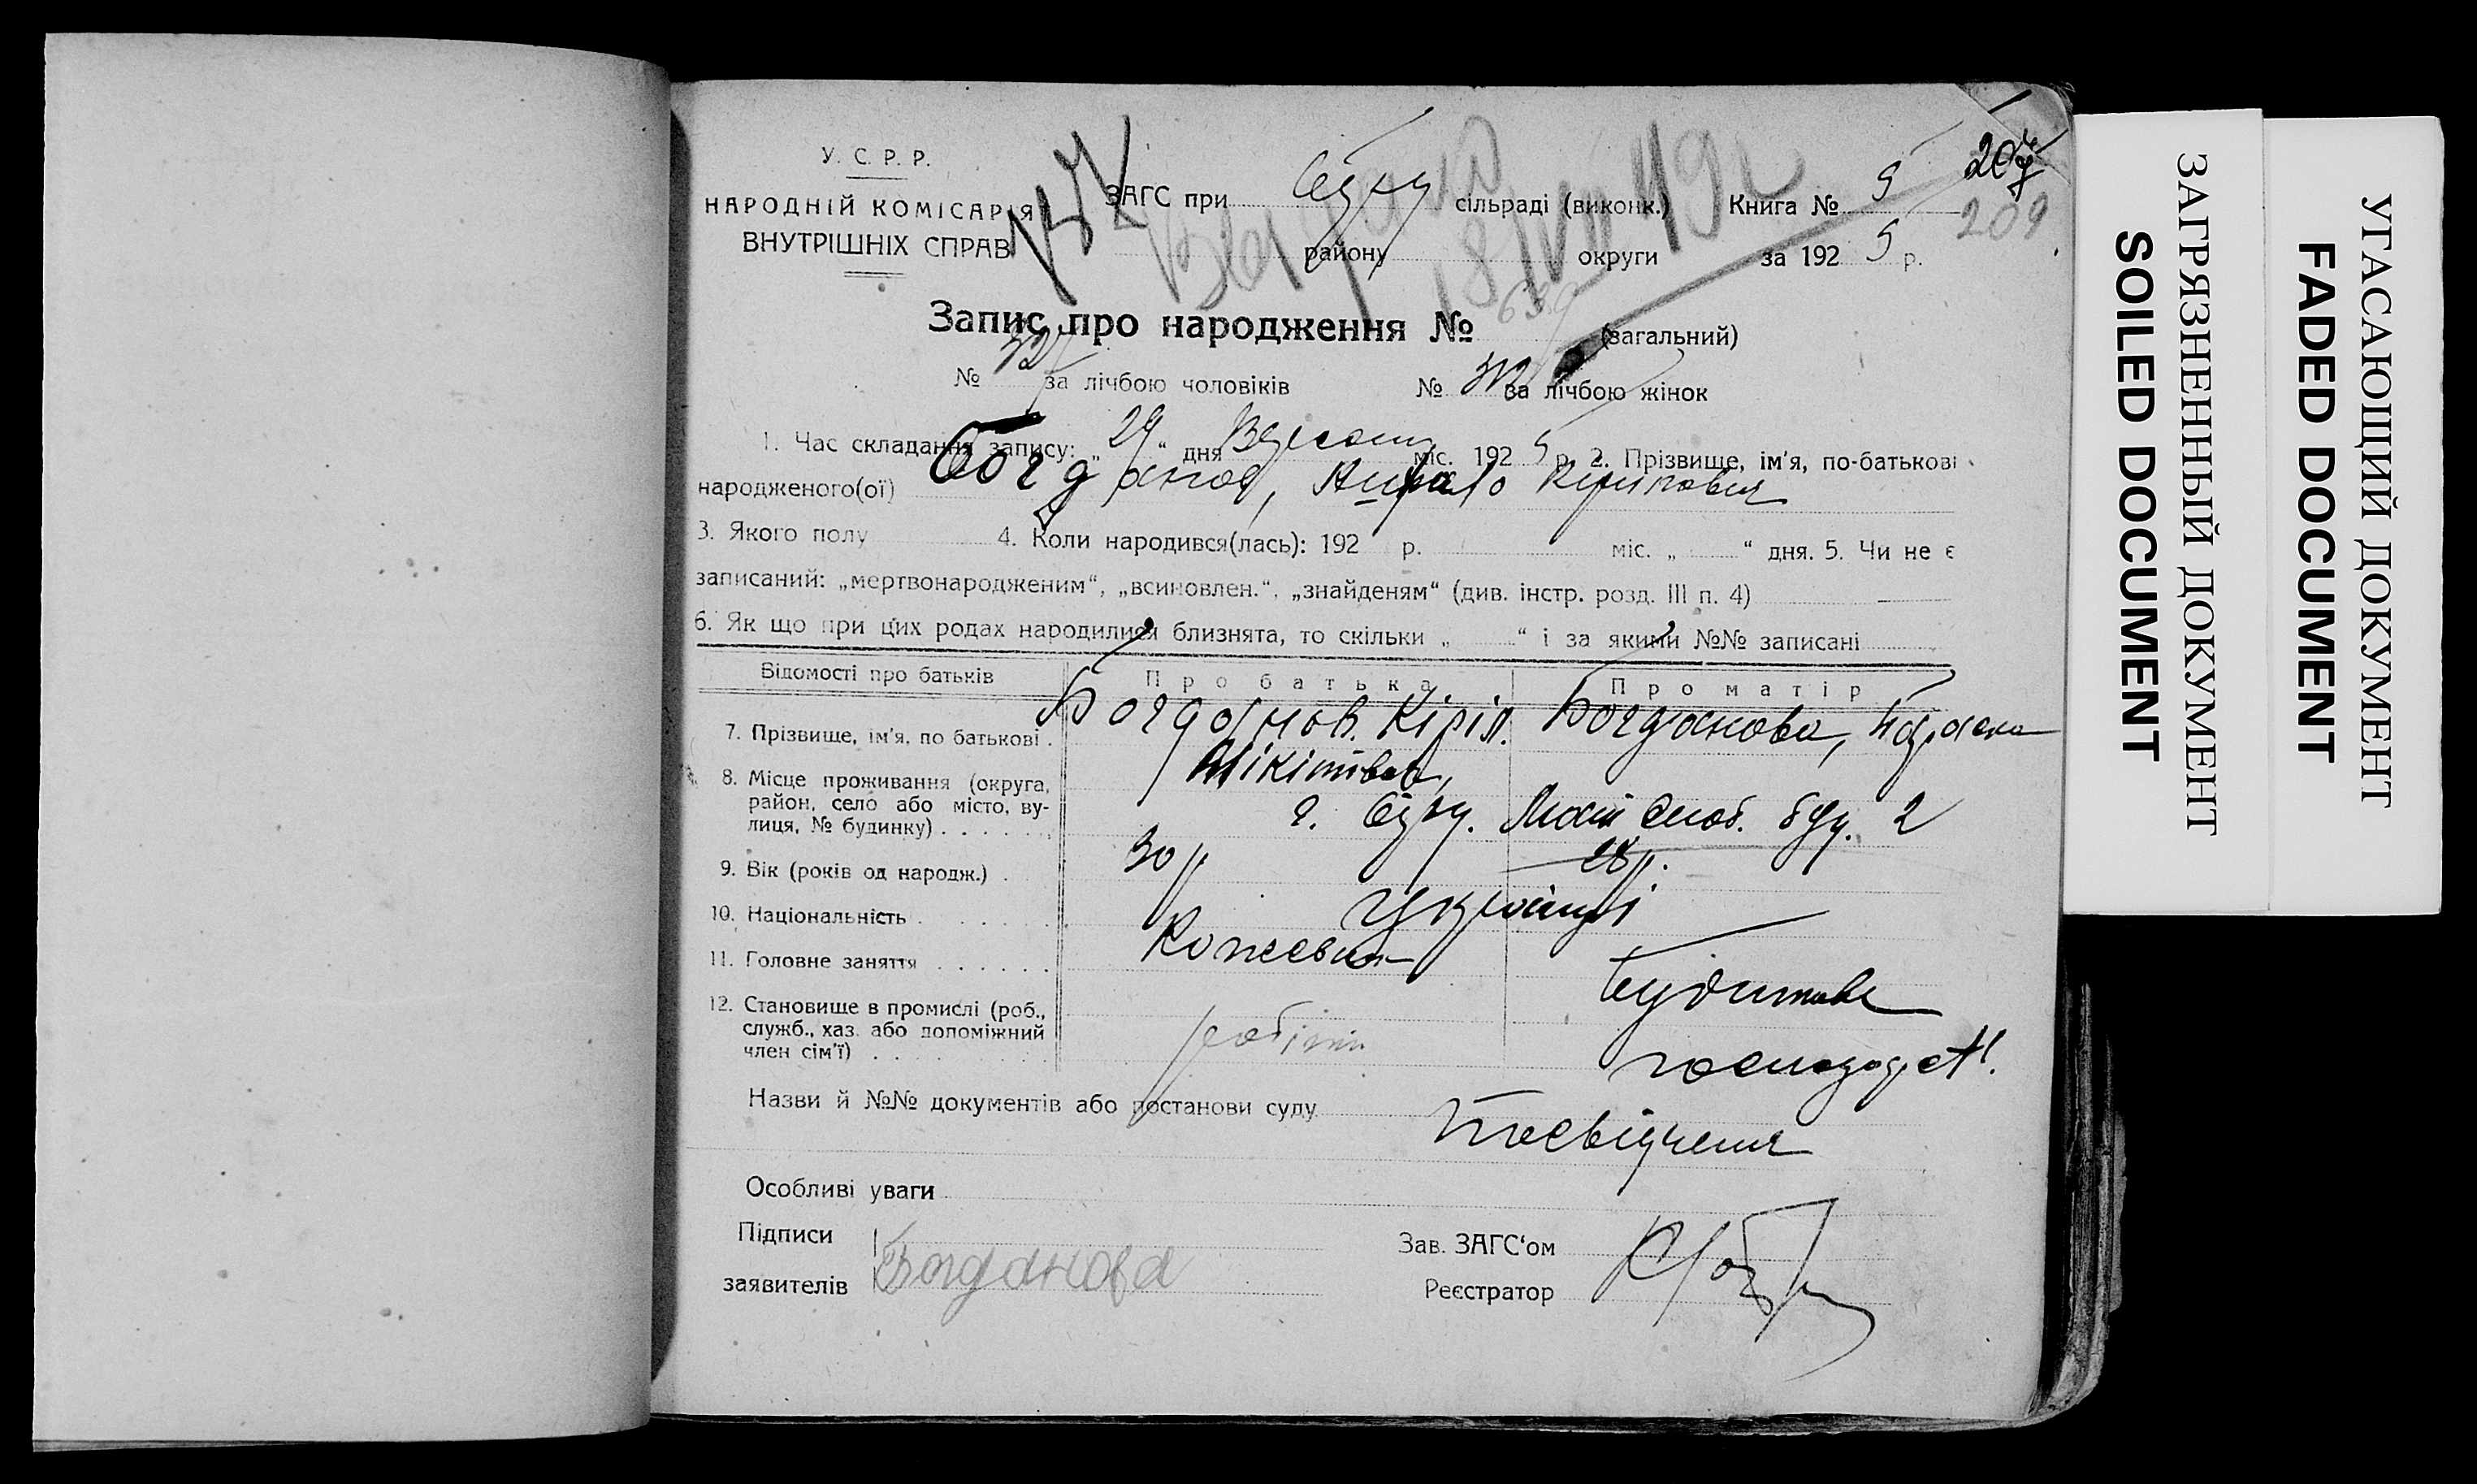 У. С. Р. Р.
НАРОДНІЙ КОМІСАРІЯТ
ВНУТРІШНІХ СПРАВ
ЗАГС при Суму сільраді (виконк.) Книга № 5
207
209
району округи за 1925 р.
Запис про народження № 639 (загальний)
№ 327 за лічбою чоловіків № 312 за лічбою жінок
1. Час складання запису: „29“ дня Вересня міс. 1925 р. 2. Прізвище, ім'я, по-батькові
народженого(ої) Богданов,
3. Якого полу 4. Коли народився(лась): 192 р. міс. „ “ дня. 5. Чи не є
записаний: „мертвонародженим“, „всиновлен.“, „знайденям“ (див. інстр. розд. III п. 4)
6. Як що при цих родах народилися близнята, то скільки „ “ і за якими №№ записані
Відомості про батьків Про батька Про матір
7. Прізвище, ім'я, по батькові. Богданов Кіріл. Богданова, Параска
Мікітівич,
8. Місце проживання (округа, район, село або місто, вулиця, № будинку) г. Суму. буд. 2
9. Вік (років од народж.) 30 р 28 р.
10. Національність Українці
11. Головне заняття Кожевник
12. Становище в промислі (роб., служб., хаз. або допоміжний член сім'ї) робітн
господарст.
Назви й №№ документів або постанови суду Посвідчення
Особливі уваги
Підписи
заявителів Богданова
Зав. ЗАГС‘ом
Реєстратор
ЗАГРЯЗНЕННЫЙ ДОКУМЕНТ
SOILED DOCUMENT
УГАСАЮЩИЙ ДОКУМЕНТ
FADED DOCUMENT